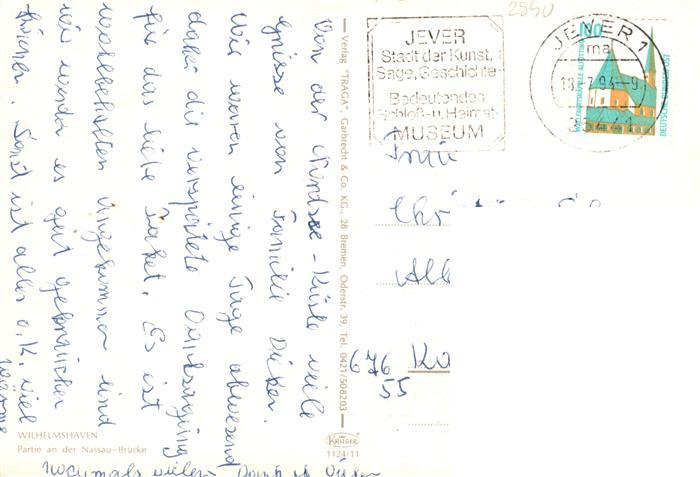 Von der Nordsee-Küste viele
Grüsse von Familie Düker.
Wir waren einige Tage abwesend
daher die verspätete Danksagung
für das liebe Paket. Es ist
wohlbehalten angekommen und
wir werden es gut gebrauchen
können. Sonst ist alles o.K. viel
Wärme
nochmals vielen Dank
WILHELMSHAVEN
Partie an der Nassau-Brücke
Verlag "TRAGA" Garbrecht & Co. KG., 28 Bremen, Oderstr. 39, Tel. 0421/508203
KRÜGER
1124/11
2840
JEVER
Stadt der Kunst,
Sage, Geschichte
Bedeutendes
Schloß-u. Heimat-
MUSEUM
JEVER 1
ma
18.-7.94-9
26441
100
WALLFAHRTSKAPELLE ALTÖTTING
DEUTSCHE BUNDESPOST
Frau
Chr
All
676 Ka
55